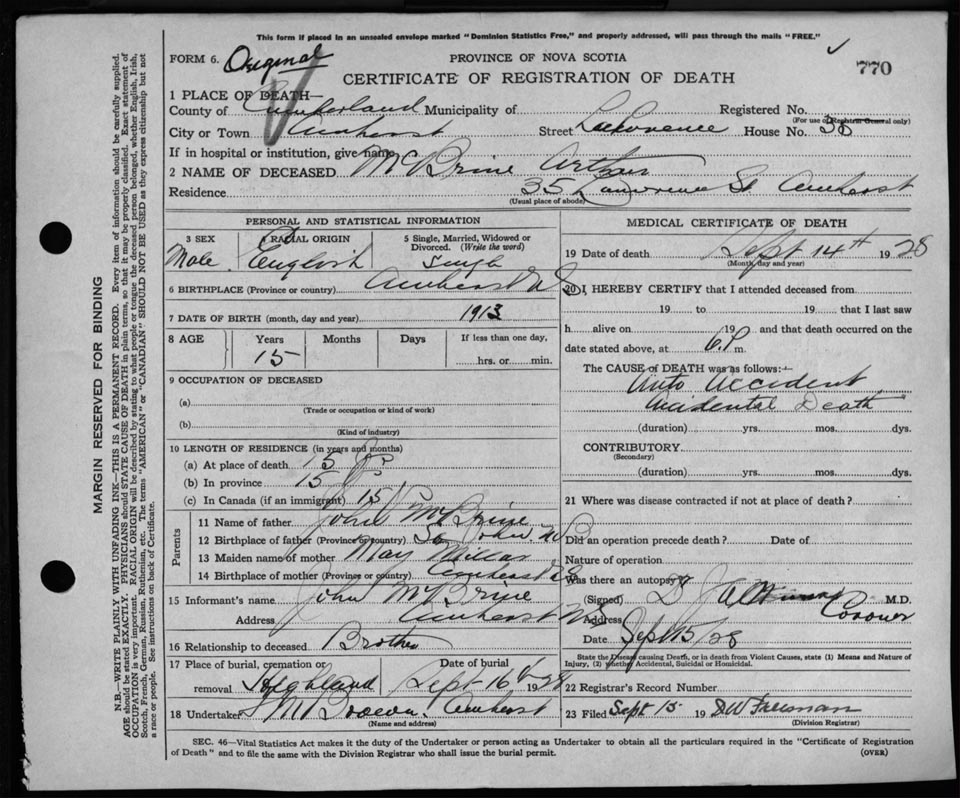 This form if placed in an unsealed envelope marked "Dominion Statistics Free," and properly addressed, will pass through the mails "FREE."
FORM 6. Original PROVINCE OF NOVA SCOTIA 770
CERTIFICATE OF REGISTRATION OF DEATH
1 PLACE OF DEATH—
County of Cumberland Municipality of Registered No.
(For use of Registrar General only)
City or Town Amherst Street House No. 38
If in hospital or institution, give name
2 NAME OF DECEASED McBrine Arthur
Residence 35 Lawrence St Amherst
(Usual place of abode)
PERSONAL AND STATISTICAL INFORMATION
3 SEX 4 RACIAL ORIGIN 5 Single, Married, Widowed or Divorced. (Write the word)
Male. English Single
6 BIRTHPLACE (Province or country) Amherst N S
7 DATE OF BIRTH (month, day and year) 1913
8 AGE Years Months Days If less than one day,
15 hrs. or min.
9 OCCUPATION OF DECEASED
(a)
(Trade or occupation or kind of work)
(b)
(Kind of industry)
10 LENGTH OF RESIDENCE (in years and months)
(a) At place of death 15
(b) In province 15
(c) In Canada (if an immigrant) 15
Parents
11 Name of father John McBrine
12 Birthplace of father (Province or country) St John N B
13 Maiden name of mother May Millar
14 Birthplace of mother (Province or country) Amherst N S
15 Informant's name John McBrine
Address Amherst N S
16 Relationship to deceased Brother
17 Place of burial, cremation or removal Highland Date of burial Sept 16th 1928
18 Undertaker Amherst
(Name and address)
MEDICAL CERTIFICATE OF DEATH
19 Date of death Sept 14th 1928
(Month, day and year)
20 I, HEREBY CERTIFY that I attended deceased from
19 to 19 that I last saw
h alive on 19 and that death occurred on the
date stated above, at 6.P m.
The CAUSE of DEATH was as follows:—
Auto Accident
Accidental Death
(duration) yrs. mos. dys.
CONTRIBUTORY
(Secondary)
(duration) yrs. mos. dys.
21 Where was disease contracted if not at place of death?
Did an operation precede death? Date of
Nature of operation
Was there an autopsy?
(Signed) M.D.
Coroner
Date Sept 15/28
State the Disease causing Death, or in death from Violent Causes, state (1) Means and Nature of Injury, (2) whether Accidental, Suicidal or Homicidal.
22 Registrar's Record Number
23 Filed Sept 15 19 D W Freeman
(Division Registrar)
SEC. 46—Vital Statistics Act makes it the duty of the Undertaker or person acting as Undertaker to obtain all the particulars required in the "Certificate of Registration
of Death" and to file the same with the Division Registrar who shall issue the burial permit. (OVER)
MARGIN RESERVED FOR BINDING
N.B.—WRITE PLAINLY WITH UNFADING INK—THIS IS A PERMANENT RECORD. Every item of information should be carefully supplied.
AGE should be stated EXACTLY. PHYSICIANS should STATE CAUSE OF DEATH in plain terms, so that it may be properly classified. Exact statement of
OCCUPATION is very important. RACIAL ORIGIN will be described by stating to what people or tongue the deceased person belonged, whether English, Irish,
Scotch, French, German, Russian, Ruthenian, etc. The terms "AMERICAN" or "CANADIAN" SHOULD NOT BE USED as they express citizenship but not
a race or people. See instructions on back of Certificate.